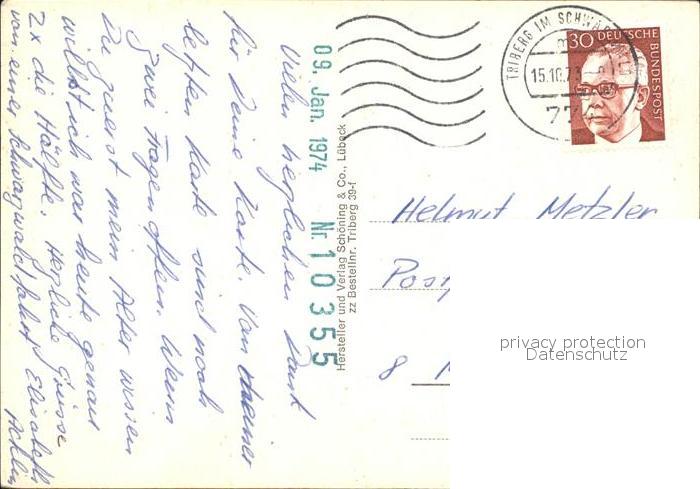 Vielen herzlichen Dank
für Deine Karte. Von Deiner
letzten Karte sind noch
zwei Fragen offen. Wenn
Du zuerst mein Alter wissen
willst, ich war heute genau
2x die Hälfte. Herzliche Grüsse
von einer Schwarzwaldfahrt Elisabeth
09. Jan. 1974 Nr. 10355
Hersteller und Verlag Schöning & Co., Lübeck
zz Bestellnr. Triberg 39-f
TRIBERG IM SCHWARZWALD
15.10.73
77
30 DEUTSCHE
BUNDESPOST
Helmut Metzler
Post
8
privacy protection
Datenschutz